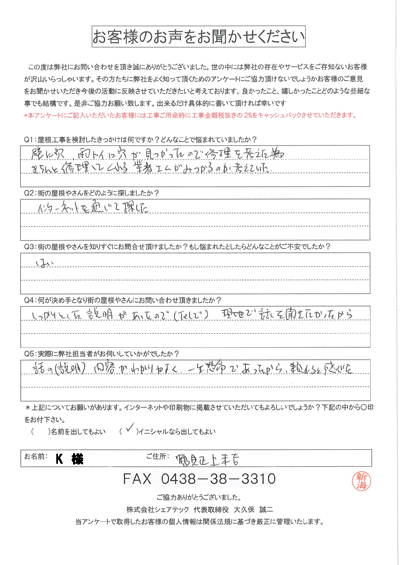 お客様のお声をお聞かせください
この度は弊社にお問い合わせ頂き誠にありがとうございました。世の中には弊社の存在やサービスをご存知ないお客様
が沢山いらっしゃいます。その方たちに弊社をよく知って頂くためのアンケートにご協力頂けないでしょうかお客様のご意見
をお聞かせいただき今後の活動に反映させていただきたいと考えております。良かったこと、嬉しかったことどのような些細な
事でも結構です。是非ご協力お願い致します。出来るだけ具体的に書いて頂ければ幸いです
*本アンケートにご記入いただいたお客様には工事ご用命時に工事金額税抜きの2%をキャッシュバックさせていただきます。
Q1:屋根工事を検討したきっかけは何ですか?どんなことで悩まれていましたか?
壁に穴、雨トイに穴が見つかったので修理を考えた為
きちんと修理してくれる業者さんがみつかるのか考えていた
Q2:街の屋根やさんをどのように探しましたか?
インターネットを通じて探した
Q3:街の屋根やさんを知りすぐにお問合せ頂けましたか?もし悩まれたとしたらどんなことがご不安でしたか?
はい
Q4:何が決め手となり街の屋根やさんにお問い合わせ頂きましたか?
しっかりとした説明があったので 現地で話を聞きたかったから
Q5:実際に弊社担当者がお伺いしていかがでしたか?
話の(説明)内容がわかりやすく、一生懸命であったから、頼れると感じた
*上記についてお願いがあります。インターネットや印刷物に掲載させていただいてもよろしいでしょうか?下記の中から〇印
をお付下さい。
( )名前を出してもよい (✓)イニシャルなら出してもよい
お名前: K 様 ご住所:
FAX 0438-38-3310
ご協力ありがとうございました。
株式会社シェアテック 代表取締役 大久保 誠二
当アンケートで取得したお客様の個人情報は関係法規に基づき厳正に管理いたします。